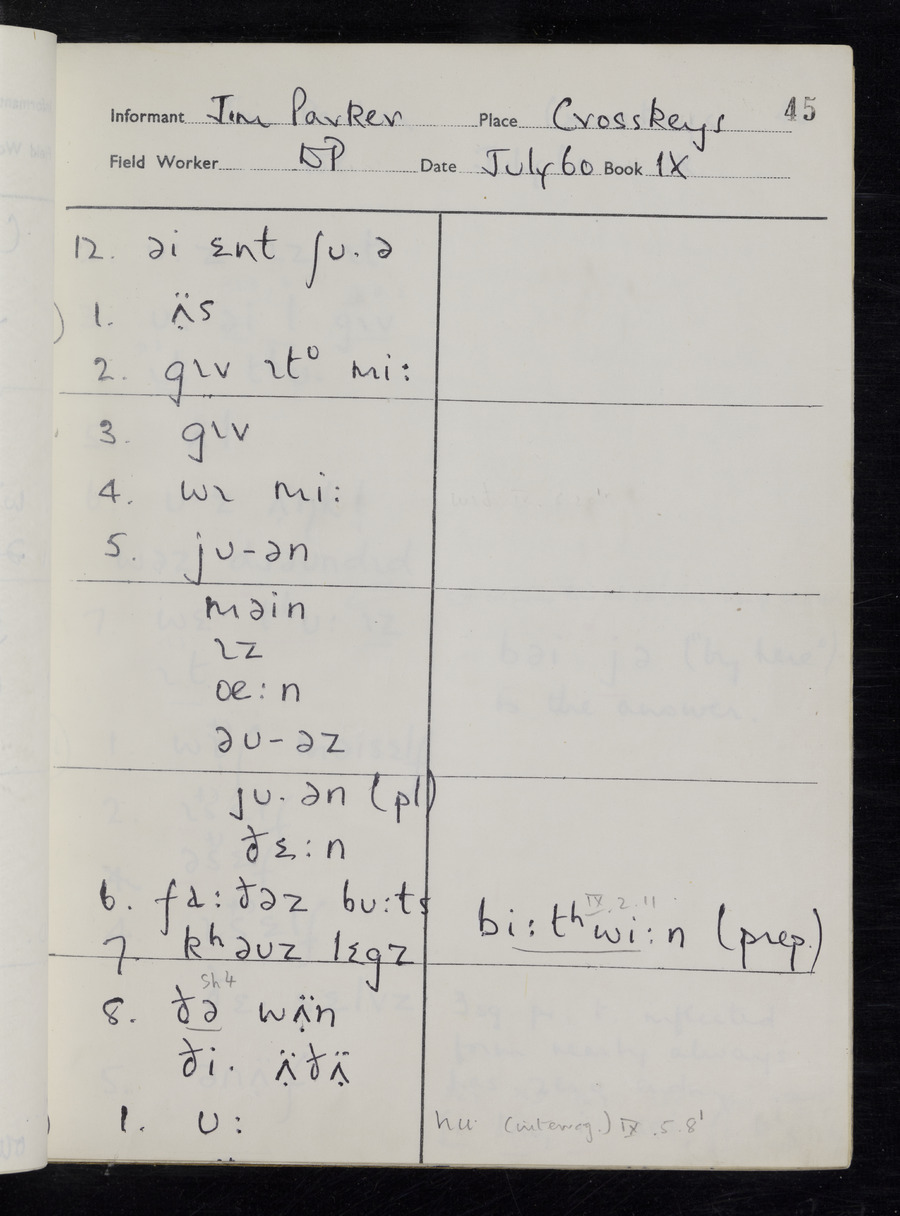 45
Informant Jim Parker Place Crosskeys
Field Worker DP Date July 60 Book IX
12. əi ɛnt ʃʊ·ə
1. ʌ̣̈s
2. gɪv ɪtᵒ mi:
3. gɪv
4. wɪ mi:
5. jʊ-ən
məin
ɪz
œ:n
əʊ-əz
jʊ·ən (pl)
ðɛ:n
6. fɑ:ðəz bu:ts
IX.2.11
bi:tʰwi:n (prep.)
7. kʰəʊz lɛgz
sh4
8. ðə wʌ̣̈n
ði· ʌ̣̈ðʌ̣̈
1. ʊ:
hu (interrog.) IX.5.8'